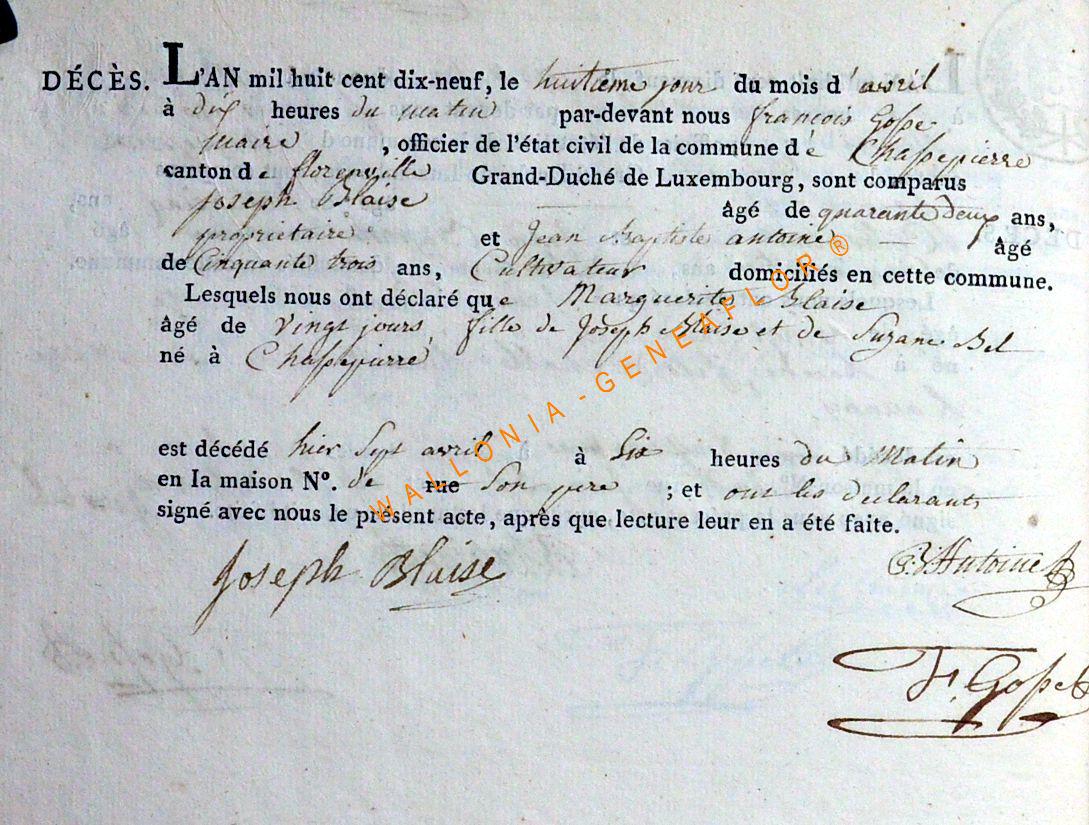 DÉCÈS. L'AN mil huit cent dix-neuf, le huitième jour du mois d'avril
à dix heures du matin par-devant nous françois Gosse
maire, officier de l'état civil de la commune de Chassepierre
canton de florenville Grand-Duché de Luxembourg, sont comparus
Joseph Blaise âgé de quarante deux ans,
propriétaire et Jean Baptiste antoine âgé
de Cinquante trois ans, Cultivateur domiciliés en cette commune.
Lesquels nous ont déclaré que Marguerite Blaise
âgé de vingt jours, fille de Joseph Blaise et de Suzane Bel
né à Chassepierre
est décédé hier Sept avril à Six heures du Matin
en la maison N°. de rue Son pere ; et ont les déclarants
signé avec nous le présent acte, après que lecture leur en a été faite.
Joseph Blaise
Antoine
Gosse
WALLONIA - GENEAFLOR ®